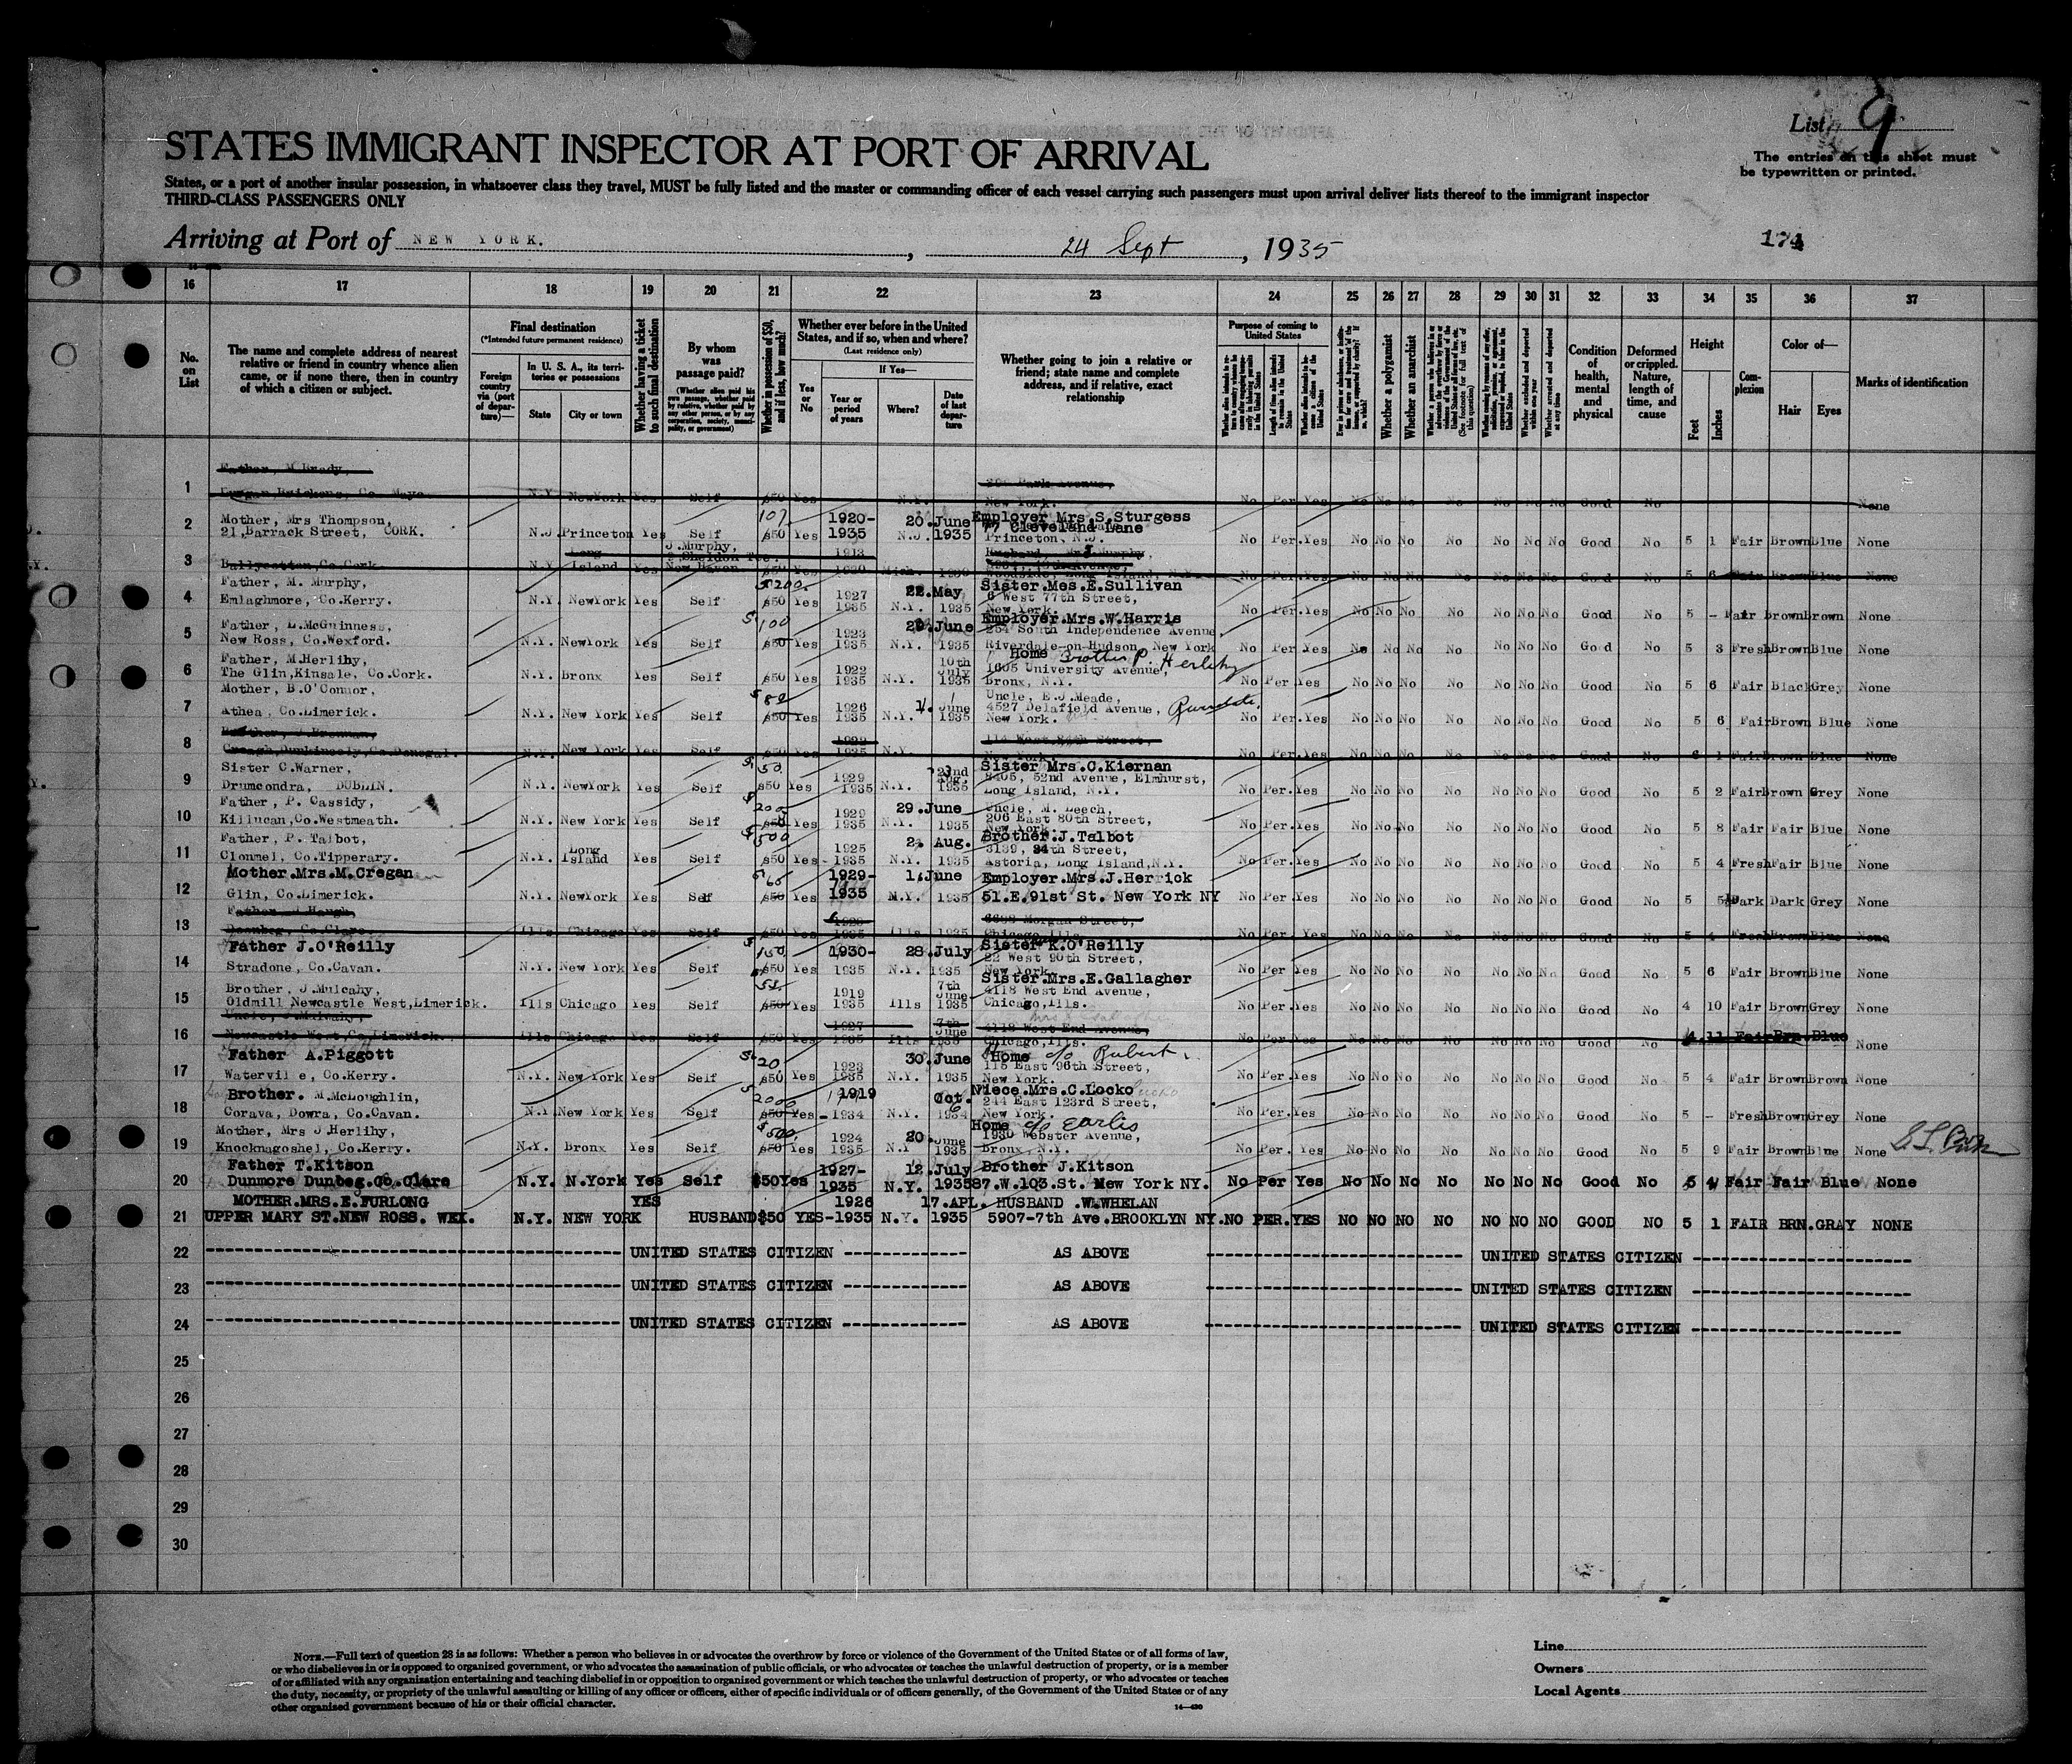 List 9
STATES IMMIGRANT INSPECTOR AT PORT OF ARRIVAL
The entries on this sheet must
be typewritten or printed.
States, or a port of another insular possession, in whatsoever class they travel, MUST be fully listed and the master or commanding officer of each vessel carrying such passengers must upon arrival deliver lists thereof to the immigrant inspector
THIRD-CLASS PASSENGERS ONLY
Arriving at Port of NEW YORK. , 24 Sept , 1935
174
16 17 18 19 20 21 22 23 24 25 26 27 28 29 30 31 32 33 34 35 36 37
No. on List
The name and complete address of nearest relative or friend in country whence alien came, or if none there, then in country of which a citizen or subject.
Final destination
(*Intended future permanent residence)
Foreign country via (port of departure)—
In U. S. A., its territories or possessions
State
City or town
Whether having a ticket to such final destination
By whom was passage paid?
(Whether alien paid his own passage, whether paid by relative, whether paid by any other person, or by any corporation, society, municipality, or government)
Whether in possession of $50, and if less, how much?
Whether ever before in the United States, and if so, when and where?
(Last residence only)
Yes or No
If Yes—
Year or period of years
Where?
Date of last departure
Whether going to join a relative or friend; state name and complete address, and if relative, exact relationship
Purpose of coming to United States
Whether a polygamist
Whether an anarchist
Condition of health, mental and physical
Deformed or crippled. Nature, length of time, and cause
Height
Feet
Inches
Complexion
Color of—
Hair
Eyes
Marks of identification
1 Father, M Brady,
N.Y. NewYork Yes Self $50 Yes N.Y. New York. No Per Yes No No No No No No No Good No None
2 Mother, Mrs Thompson,
21,Barrack Street, CORK. N.J. Princeton Yes Self 107 $50 Yes 1920-1935 N.J. 20.June 1935 Employer Mrs.S.Sturgess
77 Cleveland Lane
Princeton, N.J. No Per.Yes No No No No No No No Good No 5 1 Fair Brown Blue None
3 Ballycotton,Co.Cork. N.Y. Long Island Yes J.Murphy, New Haven $50 Yes 1913
4 Father, M. Murphy,
Emlaghmore, Co.Kerry. N.Y. NewYork Yes Self $200. $50 Yes 1927 1935 N.Y. 22.May 1935 Sister.Mes.E.Sullivan
6 West 77th Street,
New York. No Per.Yes No No No No No No No Good No 5 - Fair Brown Brown None
5 Father, L.McGuinness,
New Ross, Co.Wexford. N.Y. NewYork Yes Self $100 $50 Yes 1923 1935 N.Y. June 1935 Employer.Mrs.W.Harris
254 South Independence Avenue,
Riverdale-on-Hudson, New York No Per Yes No No No No No No No Good No 5 3 Fresh Brown Blue None
6 Father, M.Herlihy,
The Glin,Kinsale, Co.Cork. N.Y. Bronx Yes Self $50 Yes 1922 1935 N.Y. 10th July 1935 Home Brother P. Herlihy
1605 University Avenue,
Bronx, N.Y. No Per Yes No No No No No No No Good No 5 6 Fair Black Grey None
7 Mother, B.O'Connor,
Athea, Co.Limerick. N.Y. New York Yes Self $80 $50 Yes 1926 1935 N.Y. June 1935 Uncle, E.J.Meade,
4527 Delafield Avenue,
New York. No Per.Yes No No No No No No No Good No 5 6 Fair Brown Blue None
8 Creagh,Dunkineely,Co.Donegal. N.Y. New York Yes Self $50 1929 1935 N.Y. 114 West 84th Street, No Per.Yes No No No No No No No Good No 6 1 Fair Brown Blue None
9 Sister C.Warner,
Drumcondra, DUBLIN. N.Y. NewYork Yes Self $50 $50 Yes 1929 1935 N.Y. 22nd Aug. 1935 Sister Mrs.C.Kiernan
8405, 52nd Avenue, Elmhurst,
Long Island, N.Y. No Per.Yes No No No No No No No Good No 5 2 Fair Brown Grey None
10 Father, P. Cassidy,
Killucan,Co.Westmeath. N.Y. New York Yes Self $200 $50 Yes 1929 1935 N.Y. 29.June 1935 Uncle, M. Leech,
206 East 80th Street,
New York. No Per.Yes No No No No No No No Good No 5 8 Fair Fair Blue None
11 Father, P. Talbot,
Clonmel, Co.Tipperary. N.Y. Long Island Yes Self $500 $50 Yes 1925 1935 N.Y. Aug. 1935 Brother.J.Talbot
3139, 34th Street,
Astoria, Long Island,N.Y. No Per.Yes No No No No No No No Good No 5 4 Fresh Fair Blue None
12 Mother.Mrs.M.Cregan
Glin, Co.Limerick. N.Y. NewYork Yes Self $50 Yes 1929-1935 N.Y. 1.June 1935 Employer.Mrs.J.Herrick
51.E.91st St. New York NY No Per.Yes No No No No No No No Good No 5 Dark Dark Grey None
13 Father J Haugh,
Doonbeg, Co.Clare. Ills Chicago Yes Self $50 Yes 1935 Ills 1935 Morgan Street,
Chicago,Ills. No Per Yes No No No No No No No Good No 5 4 Fresh Brown Blue None
14 Father J.O'Reilly
Stradone, Co.Cavan. N.Y. New York Yes Self $150 $50 Yes 1930-1935 N.Y. 28.July 1935 Sister K.O'Reilly
22 West 90th Street,
New York. No Per Yes No No No No No No No Good No 5 6 Fair Brown Blue None
15 Brother, J.Mulcahy,
Oldmill Newcastle West,Limerick. Ills Chicago Yes Self $50 Yes 1919 1935 Ills 7th June 1935 Sister.Mrs.E.Gallagher
4118 West End Avenue,
Chicago,Ills. No Per.Yes No No No No No No No Good No 4 10 Fair Brown Grey None
16 Uncle, J.Mulcahy,
Newcastle West,Co.Limerick. Ills Chicago Yes Self $50 Yes 1927 1935 Ills 7th June 1935 4118 West End Avenue,
Chicago,Ills. No Per.Yes No No No No No No No Good No 4 11 Fair Brn. Blue None
17 Father A.Piggott
Waterville, Co.Kerry. N.Y. New York Yes Self $20 $50 Yes 1923 1935 N.Y. 30.June 1935 Home c/o Rubert
115 East 96th Street,
New York. No Per.Yes No No No No No No No Good No 5 4 Fair Brown Brown None
18 Brother. M.McLoughlin,
Corava, Dowra, Co.Cavan. N.Y. New York Yes Self $50 Yes 1919 1934 N.Y. Oct. 1934 Niece.Mrs.C.Locko
244 East 123rd Street,
New York. No Per.Yes No No No No No No No Good No 5 - Fresh Brown Grey None
19 Mother, Mrs J.Herlihy,
Knocknagoshel, Co.Kerry. N.Y. Bronx Yes Self $500. $50 Yes 1924 1935 N.Y. 20 June 1935 Home c/o Earlis
1930 Webster Avenue,
Bronx, N.Y. No Per. Yes No No No No No No No Good No 5 9 Fair Brown Blue None
20 Father T.Kitson
Dunmore Dunbeg.Co.Clare N.Y. N.York Yes Self $50 Yes 1927-1935 N.Y. 12.July 1935 Brother J.Kitson
87.W.103.St. New York NY. No Per Yes No No No No No No No Good No 5 4 Fair Fair Blue None
21 MOTHER.MRS.E.FURLONG
UPPER MARY ST.NEW ROSS. WEX. N.Y. NEW YORK YES HUSBAND $50 YES 1926-1935 N.Y. 17.APL. 1935 HUSBAND .W.WHELAN
5907-7th Ave.BROOKLYN NY. NO PER.YES NO NO NO NO NO NO NO GOOD NO 5 1 FAIR BRN. GRAY NONE
22 UNITED STATES CITIZEN AS ABOVE UNITED STATES CITIZEN
23 UNITED STATES CITIZEN AS ABOVE UNITED STATES CITIZEN
24 UNITED STATES CITIZEN AS ABOVE UNITED STATES CITIZEN
25
26
27
28
29
30
NOTE.—Full text of question 28 is as follows: Whether a person who believes in or advocates the overthrow by force or violence of the Government of the United States or of all forms of law,
or who disbelieves in or is opposed to organized government, or who advocates the assassination of public officials, or who advocates or teaches the unlawful destruction of property, or is a member
of or affiliated with any organization entertaining and teaching disbelief in or opposition to organized government or which teaches the unlawful destruction of property, or who advocates or teaches
the duty, necessity, or propriety of the unlawful assaulting or killing of any officer or officers, either of specific individuals or of officers generally, of the Government of the United States or of any
other organized government because of his or their official character.
14—430
Line
Owners
Local Agents